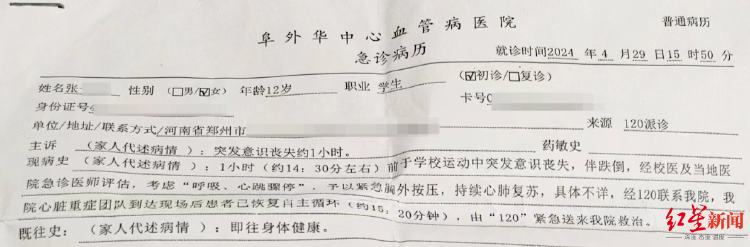 阜外华中心血管病医院
普通病历
急诊病历
就诊时间2024 年 4 月 29 日15 时50 分
姓名张 性别 (□男/☑女) 年龄12岁 职业 学生 (☑初诊/□复诊)
身份证号 卡号
单位/地址/联系方式/河南省郑州市 来源 120派诊
主诉 (家人代述病情 ):突发意识丧失约1小时。 药敏史
现病史 (家人代述病情 ):1小时(约14:30分左右)前于学校运动中突发意识丧失,伴跌倒,经校医及当地医
院急诊医师评估,考虑“呼吸、心跳骤停”,予以紧急胸外按压,持续心肺复苏,具体不详,经120联系我院,我
院心脏重症团队到达现场后患者已恢复自主循环(约15:20分钟),由“120”紧急送来我院救治。
既往史: (家人代述病情 ):即往身体健康。
红星新闻